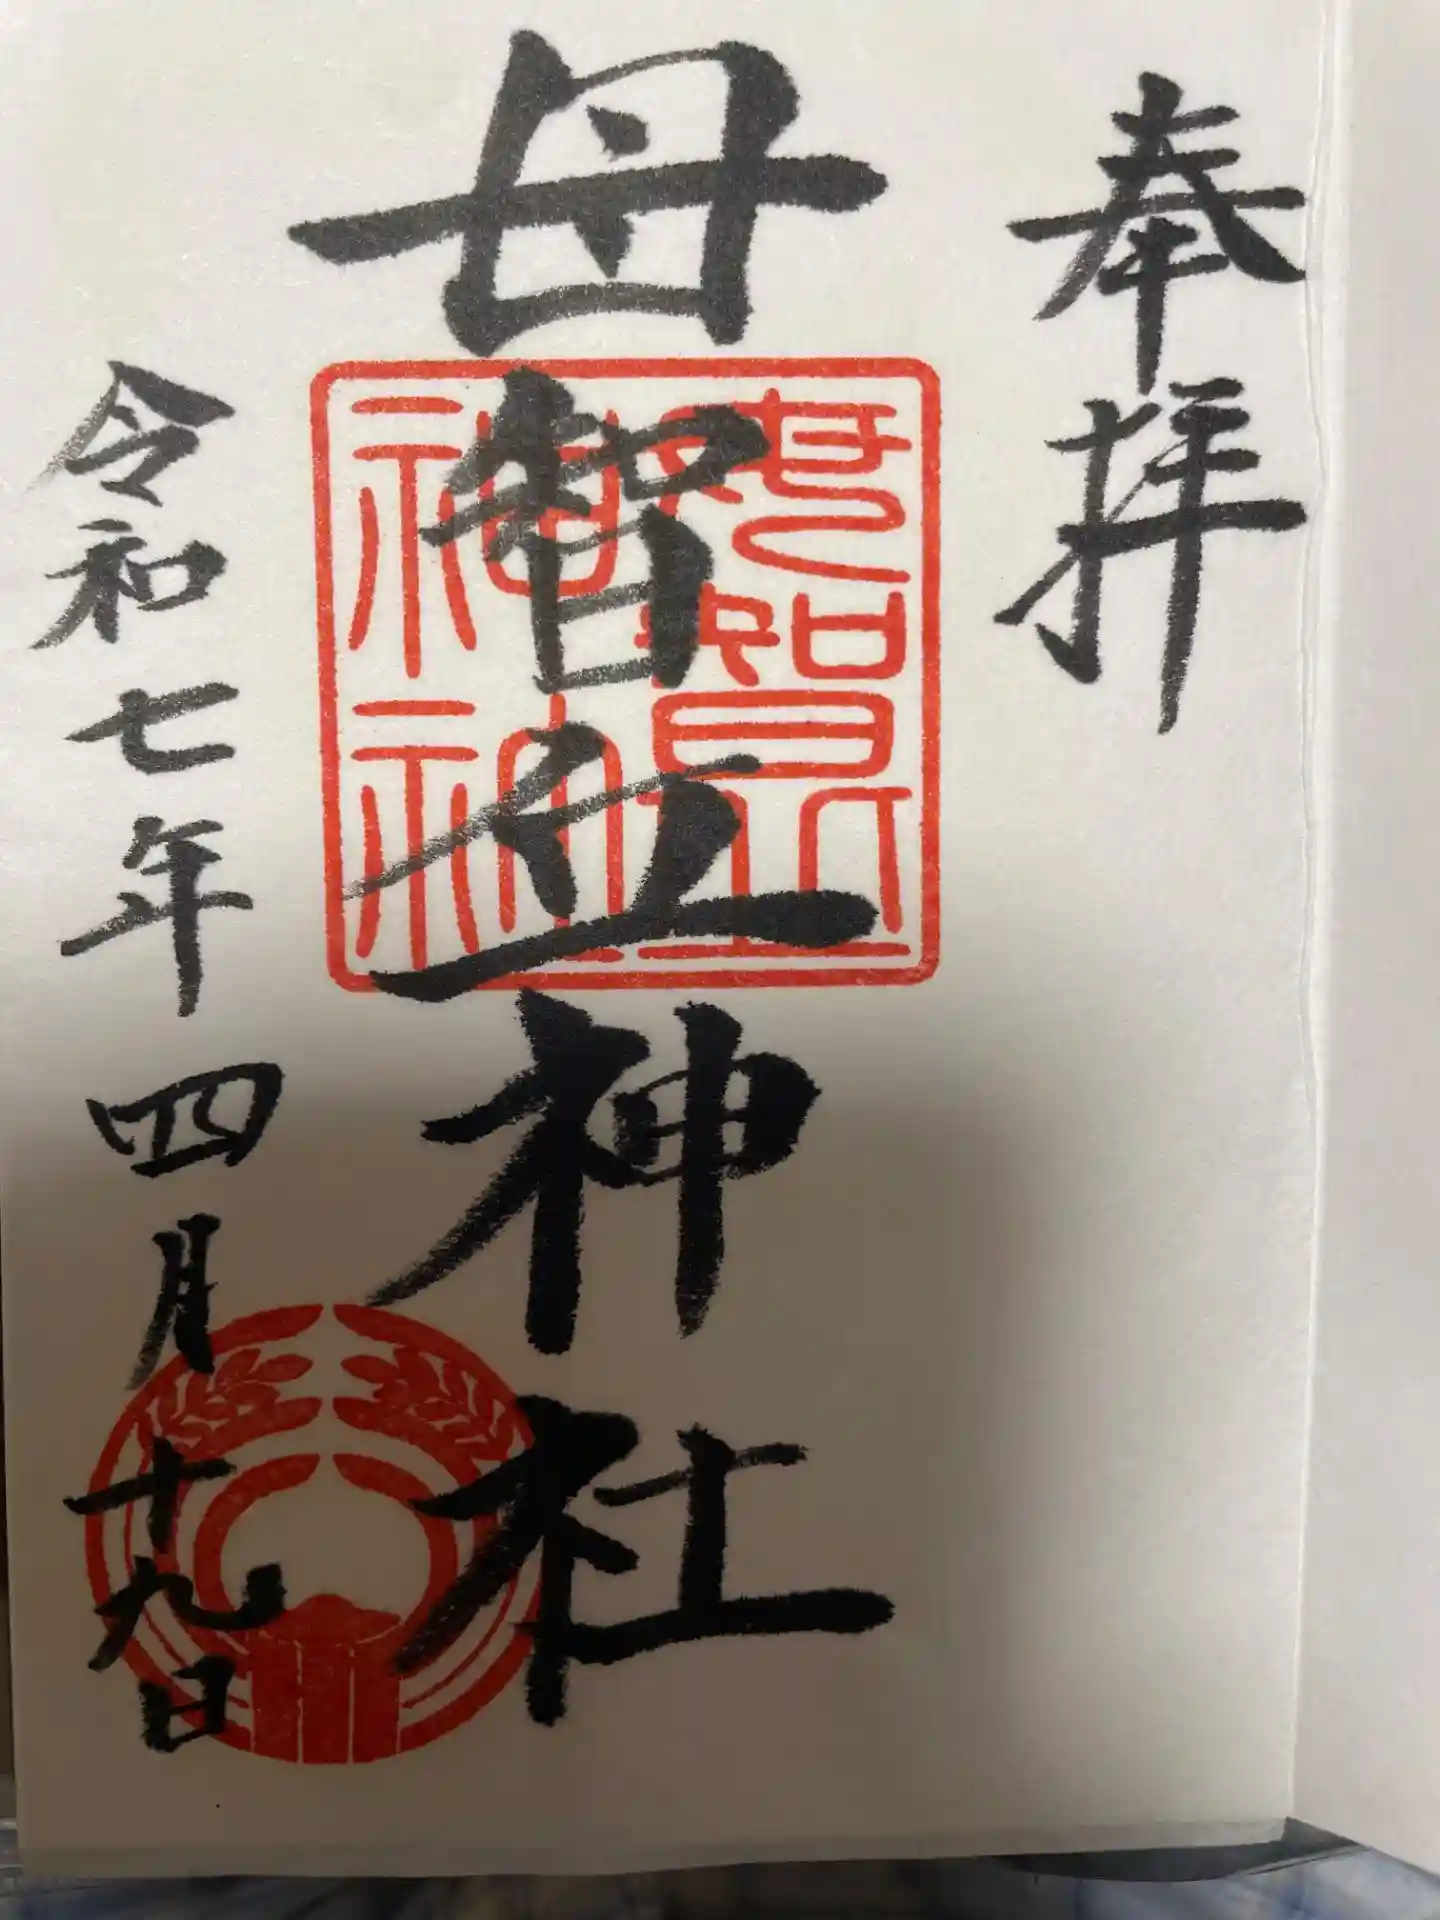 奉拝
母智丘神社
母智丘
神社
令和七年四月十九日